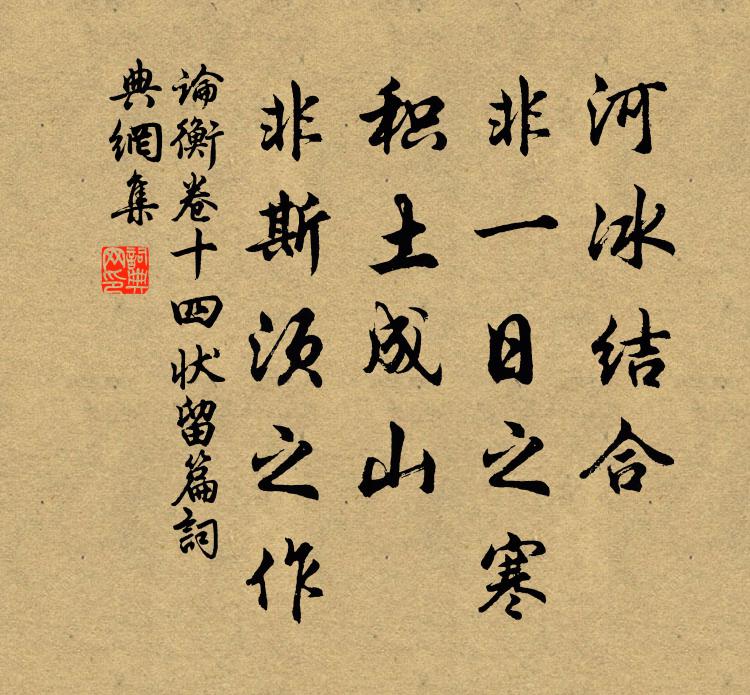 河冰结合
非一日之寒
积土成山
非斯须之作
论衡卷十四状留篇詞
典網集
詞典
网印